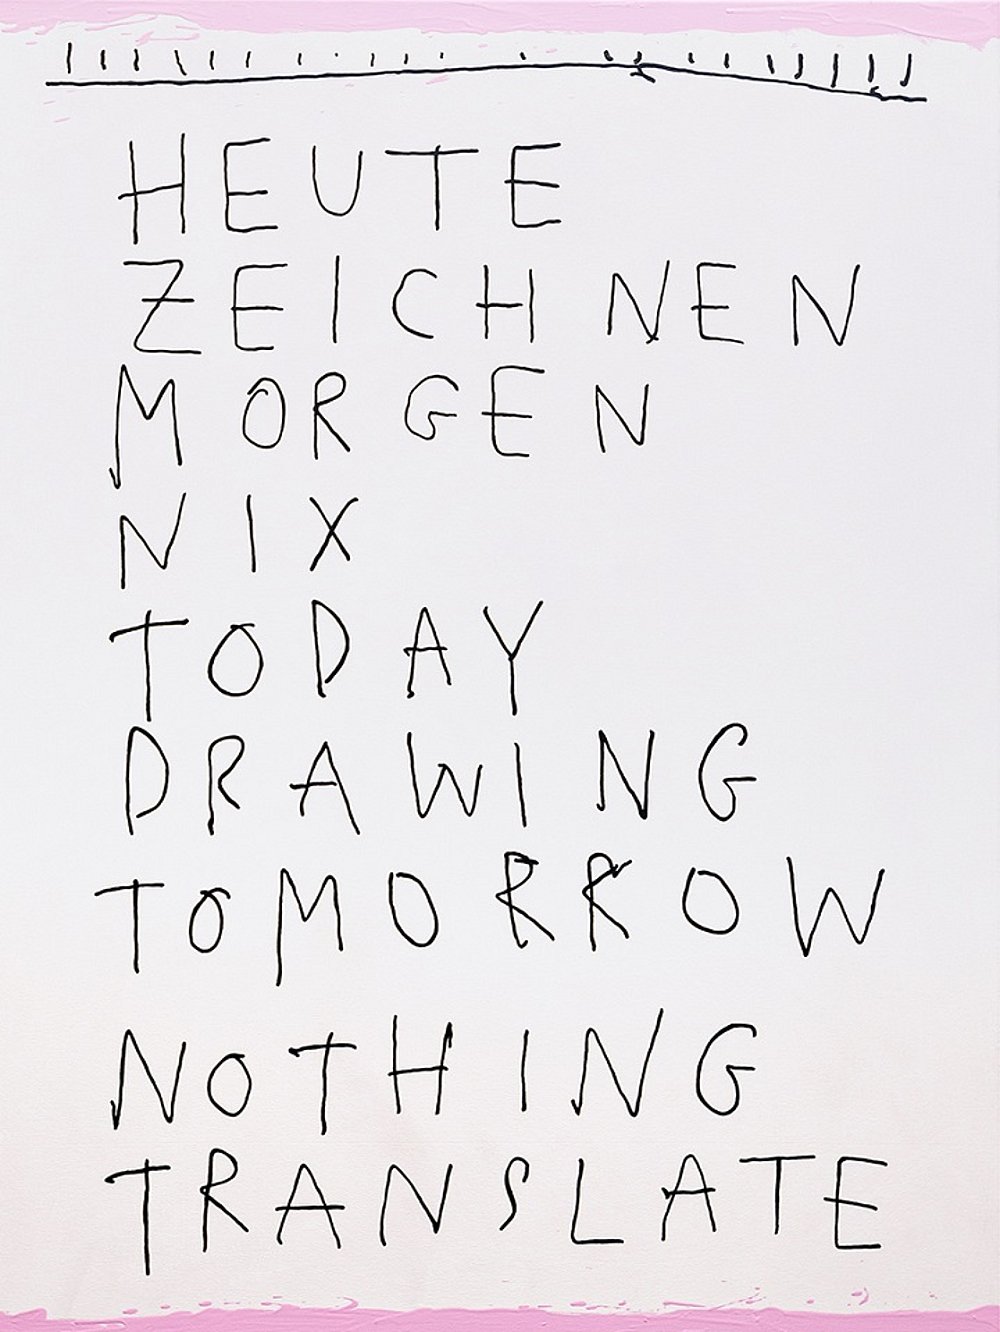 HEUTE
ZEICHNEN
MORGEN
NIX
TODAY
DRAWING
TOMORROW
NOTHING
TRANSLATE